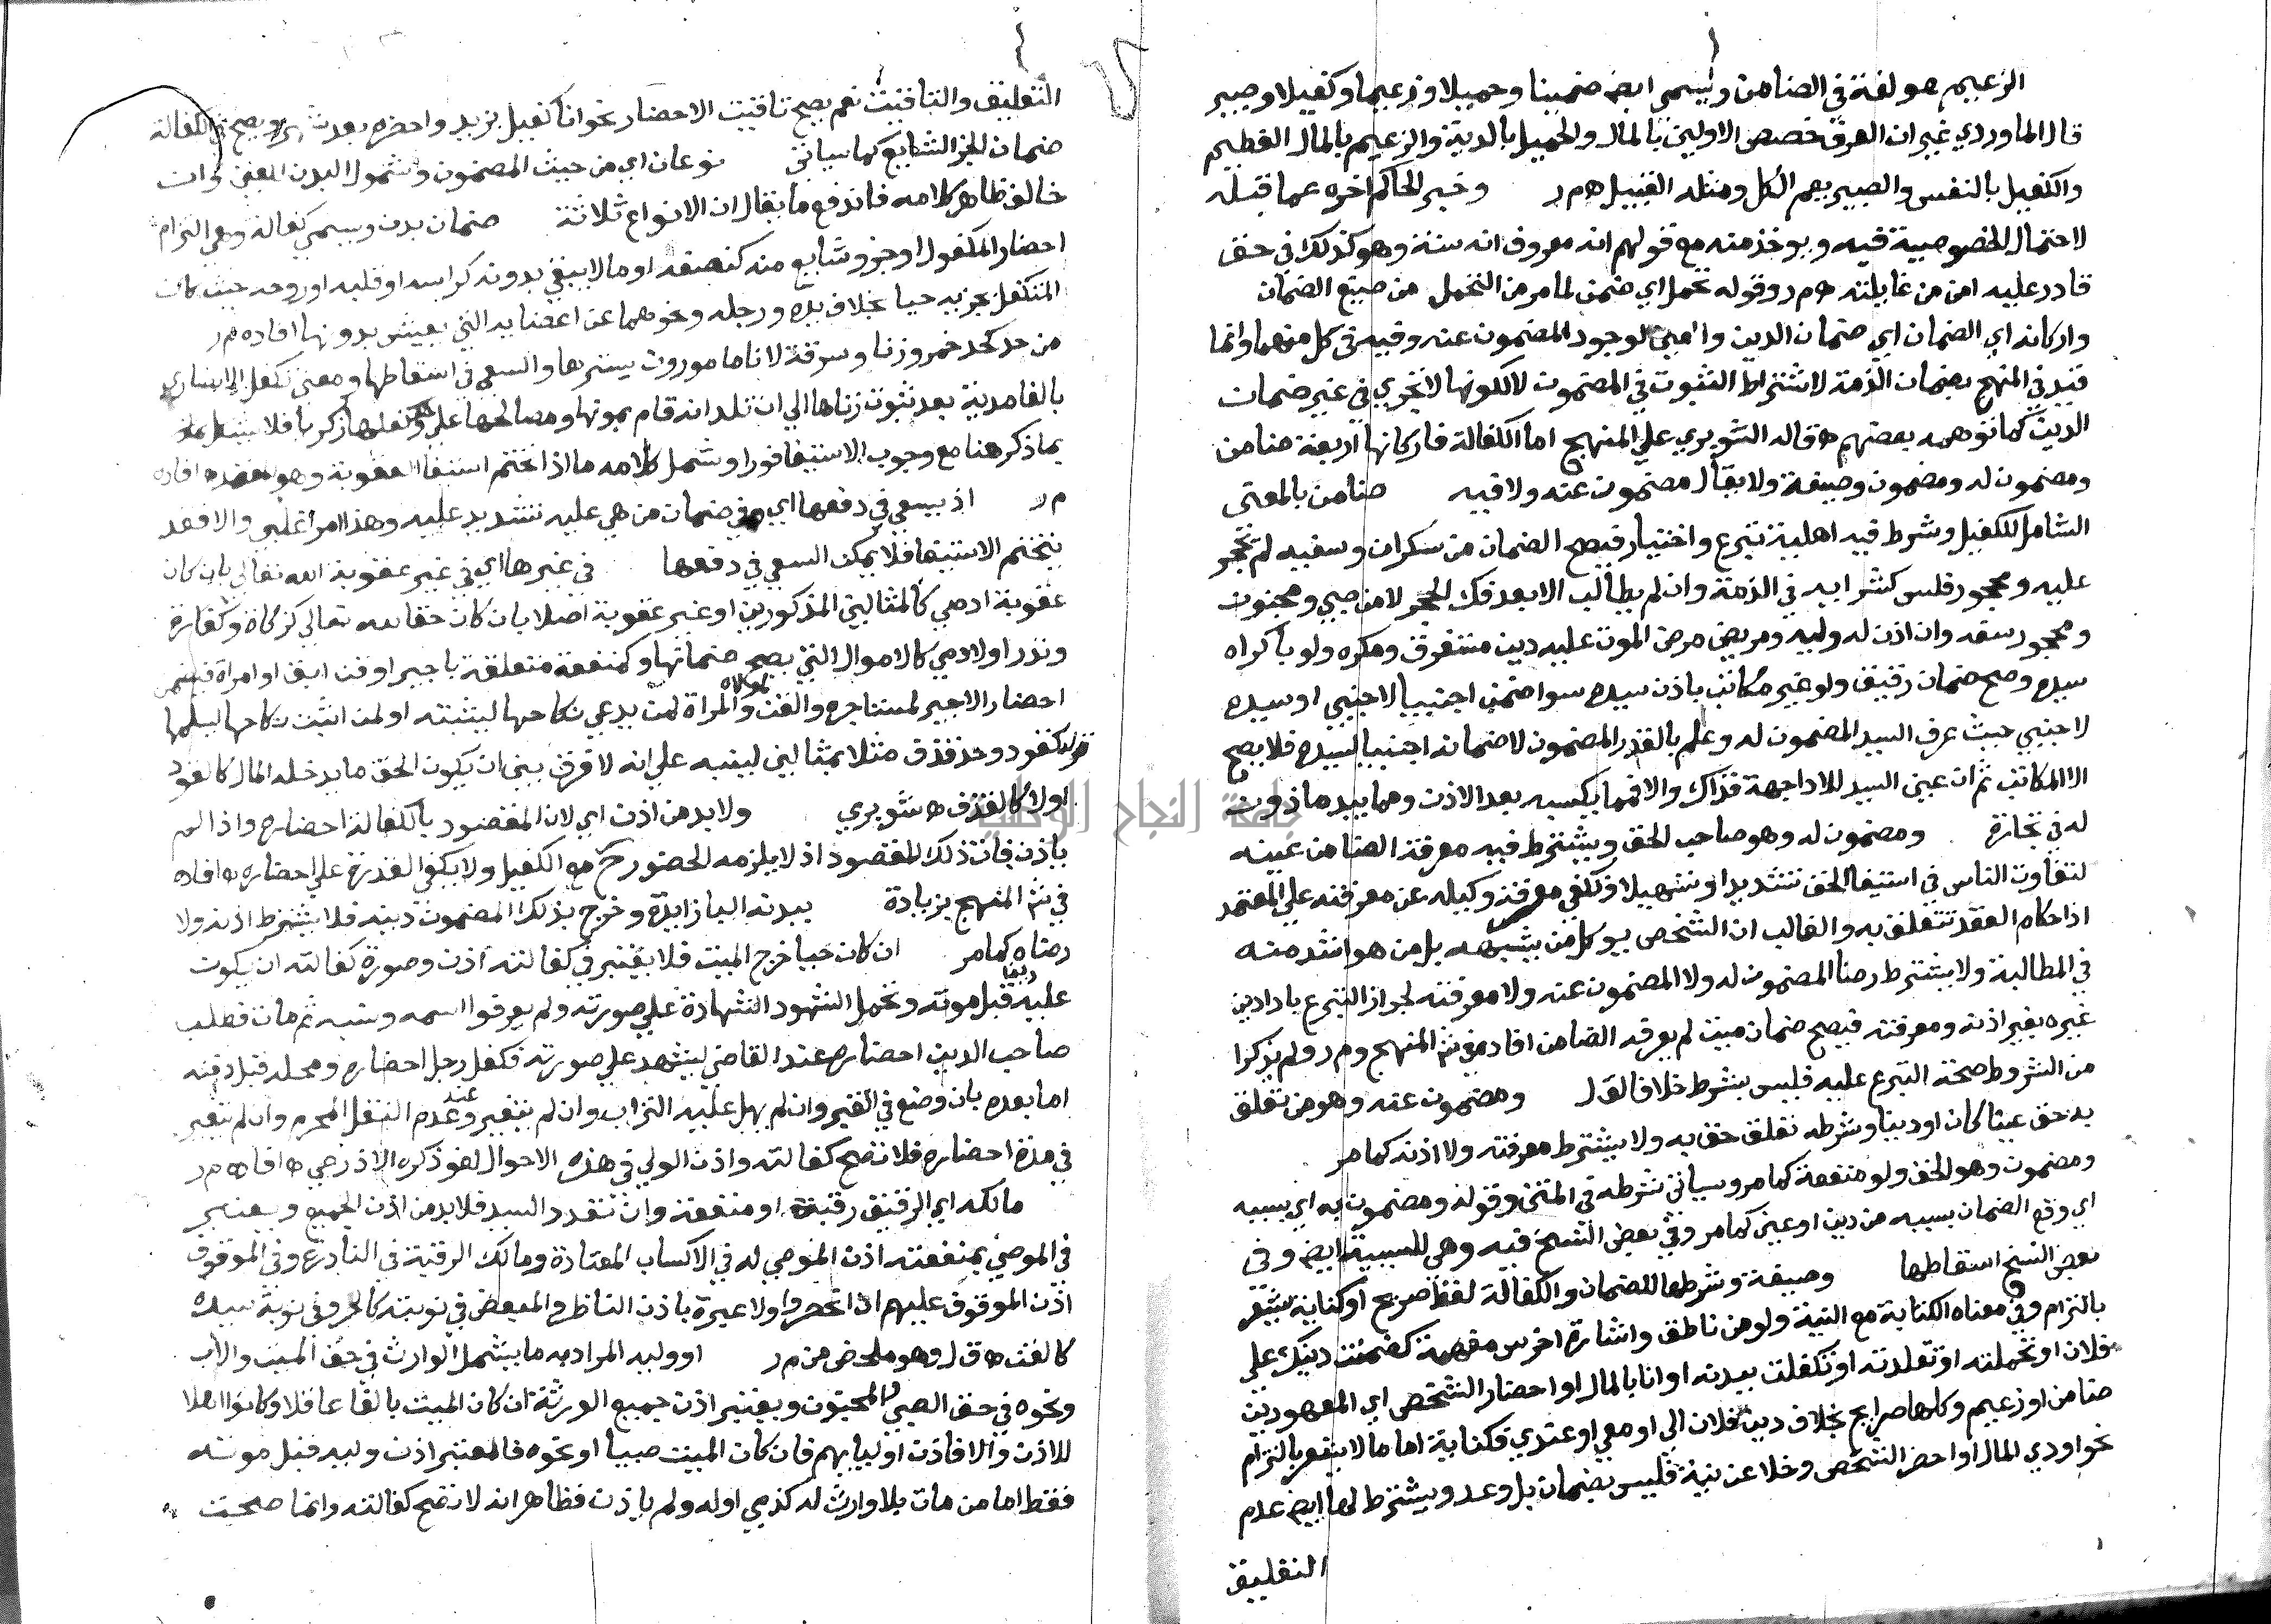 الزعيم هو لغة في الضامن ويسمى ايض ضمينا وحميلا وزعيما وكفيلا وصبير
قال الماوردي غير ان العرف خصص الاولين بالمال والحميل بالدية والزعيم بالمال العظيم
والكفيل بالنفس والصبير يعم الكل ومثله القبيل ه م ر وخبر الحاكم اخره عما قبله
لاحتمال الخصوصية فيه ويوخذ منه مع قولهم انه معروف انه سنة وهو كذلك في حق
قادر عليه امن من غايلته ه م ر وقوله تحمل اي ضمن لما مر من التحمل من صيغ الضمان
واركانه اي الضمان اي ضمان الدين والعين لوجود المضمون عنه وفيه في كل منهما وانما
قيد في المنهج بضمان الذمة لاشتراط الثبوت في المضمون لا لكونها لا تجري في غير ضمان
الدين كما توهمه بعضهم ه قاله الشوبري علي المنهج اما الكفالة فاركانها اربعة ضامن
ومضمون له ومضمون وصيغة ولا يقال مضمون عنه ولا فيه ضامن بالمعنى
الشامل للكفيل وشرط فيه اهلية تبرع واختيار فيصح الضمان من سكران وسفيه لم يحجر
عليه ومحجور فلس كشرايه في الذمة وان لم يطالب الا بعد فك الحجر لا من صبي ومجنون
ومحجور سفه وان اذن له وليه ومريض مرض الموت عليه دين مستغرق ومكره ولو باكراه
سيده وصح ضمان رقيق ولو غير مكاتب باذن سيده سوا ضمن اجنبيا لاجنبي او سيده
لاجنبي حيث عرف السيد المضمون له وعلم بالقدر المضمون لا ضمانه اجنبيا لسيده فلا يصح
الا المكاتب ثم ان عين السيد للاداجهة فذاك والا فمما يكسبه بعد الاذن ومما بيد ماذون
له في تجارة ومضمون له وهو صاحب الحق ويشترط فيه معرفة الضامن عينه
لتفاوت الناس في استيفا الحق تشديدا وتسهيلا وتكفي معرفة وكيله عن معرفته علي المعتمد
اذ احكام العقد تتعلق به والغالب ان الشخص يوكل من يشبهه بل من هو اشد منه
في المطالبة ولا يشترط رضا المضمون له ولا المضمون عنه ولا معرفته لجواز التبرع باداء دين
غيره بغير اذنه ومعرفته فيصح ضمان ميت لم يعرفه الضامن افاده في ش المنهج و م ر ولم يذكرا
من الشروط صحة التبرع عليه فليس بشرط خلافا لق ل ومضمون عنه وهو من تعلق
به حق عينا كان او دينا وشرطه تعلق حق به ولا يشترط معرفته ولا اذنه كما مر
ومضمون وهو الحق ولو منفعة كما مر وسياتي شرطه في المتن وقوله ومضمون به اي بسببه
اي وقع الضمان بسببه من دين او عين كما مر وفي بعض النسخ فيه وهي للسببية ايض وفي
بعض النسخ اسقاطها وصيغة وشرطها للضمان والكفالة لفظ صريح او كناية يشعر
بالتزام وفي معناه الكتابة مع النية ولو من ناطق واشارة اخرس مفهمة كضمنت دينك علي
فلان او تحملته او تقلدته او تكفلت ببدنه او انا بالمال او احضار الشخص اي المعهودين
ضامن او زعيم وكلها صرايح بخلاف دين فلان الي او معي او عندي فكناية اما ما لا يشعر بالتزام
نحو اودي المال او احضر الشخص وخلا عن نية فليس بضمان بل وعد ويشترط لها ايض عدم
التعليق
التعليق والتاقيت نعم يصح تاقيت الاحضار نحو انا كفيل بزيد واحضره بعد شهر ويصح في الكفالة
ضمان الجز الشايع كما سياتي نوعان اي من حيث المضمون وشمول البدن للعين وان
خالف ظاهر كلامه فاندفع ما يقال ان الانواع ثلاثة ضمان بدن ويسمى كفالة وهي التزام
احضار المكفول او جزء شايع منه كنصفه او ما لا يبقى بدونه كراسه او قلبه او روحه حيث كان
المتكفل بجزيه حيا بخلاف يده ورجله ونحوهما من اعضايه التي يعيش بدونها افاده م ر
من حد كحد خمر وزنا وسرقة لانا مامورون بسترها والسعي في اسقاطها ومعنى تكفل الانصاري
بالغامدية بعد ثبوت زناها الي ان تلد انه قام بمونها ومصالحها
بما ذكر هنا مع وجوب الاستيفا فورا وشمل كلامه ما اذا تحتم استيفا العقوبة وهو افاده
م ر اذ يسعي في دفعها اي في ضمان من هي عليه تشديد عليه وهذا امر اغلبي والا فقد
يتحتم الاستيفا فلا يمكن السعي في دفعها في غيرها اي في غير عقوبة الله تعالي بان كان
عقوبة ادمي كالمثالين المذكورين او غير عقوبة اصلا بان كان حقا لله تعالي كزكاة وكفارة
ونذر او لادمي كالاموال التي يصح ضمانها وكمنفعة متعلقة باجير او قن ابق او امراة فيضمن
احضار الاجير لمستاجره والقن لمولاه والمراة لمن يدعي نكاحها ليثبته او لمن اثبت نكاحها ليسلمها
كقود وحد قذف مثلا بمثالين لينبه علي انه لا فرق بين ان يكون الحق ما يدخله المال كالقود
اولا كالقذف ه شوبري ولا بد من اذن اي لان المقصود بالكفالة احضاره واذا لم
ياذن فات ذلك المقصود اذ لا يلزمه الحضور ح مع الكفيل ولا يكفي القدرة علي احضاره ه افاده
في ش المنهج بزيادة ببدنه البا زايدة وخرج بذلك المضمون دينه فلا يشترط اذنه ولا
رضاه كما مر ان كان حيا خرج الميت فلا يعتبر في كفالته اذن وصورة كفالته ان يكون
عليه دينا قبل موته وتحمل الشهود الشهادة علي صورته ولم يعرفوا اسمه ونسبه ثم مات فطلب
صاحب الدين احضاره عند القاضي ليشهد علي صورته فكفل رجل احضاره ومحله قبل دفنه
اما بعده بان وضع في القبر وان لم يهل عليه التراب وان لم يتغير وعند عدم النقل المحرم وان لم يتغير
في مدة احضاره فلا تصح كفالته واذن الولي في هذه الاحوال لغو ذكره الاذرعي ه افاده م ر
مالكه اي الرقيق رقبة او منفعة وان تعدد السيد فلا بد من اذن الجميع ويعتبر
في الموصي بمنفعته اذن الموصي له في الاكساب المعتادة ومالك الرقبة في النادرة وفي الموقوف
اذن الموقوف عليهم ان انحصروا ولا عبرة باذن الناظر والمبعض في نوبته كالحر وفي نوبة سيده
كالقن ه ق ل وهو ملخص من م ر او وليه المراد به ما يشمل الوارث في حق الميت والاب
ونحوه في حق الصبي والمجنون ويعتبر اذن جميع الورثة ان كان الميت بالغا عاقلا وكانوا اهلا
للاذن والا فاذن اوليايهم فان كان الميت صبيا او نحوه فالمعتبر اذن وليه قبل موته
فقط اما من مات بلا وارث له كذمي اوله ولم ياذن فظاهر انه لا تصح كفالته وانما صحت
جامعة النجاح الوطنية